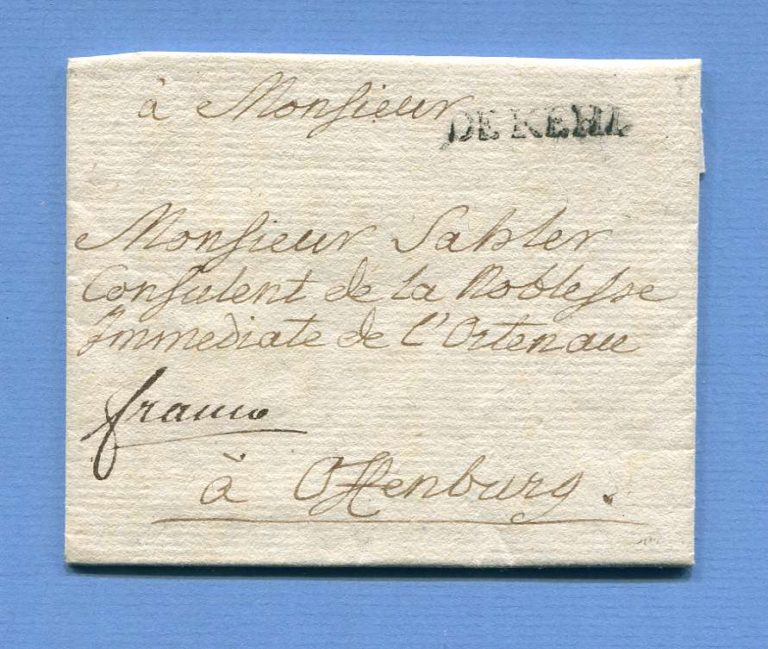 à Monsieur
DE KEHL
Monsieur Sahler
Consulent de la Noblesse
Immediate de l'Ortenau
franco
à Offenburg.